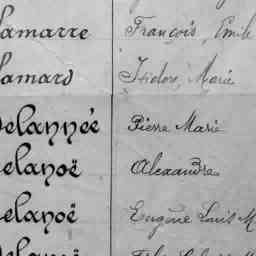 Lamarre François, Emile
Lamars Isidore, Marie
Delannée Pierre Marie
Delanoë Alexandre
Delanoë Eugène Louis M